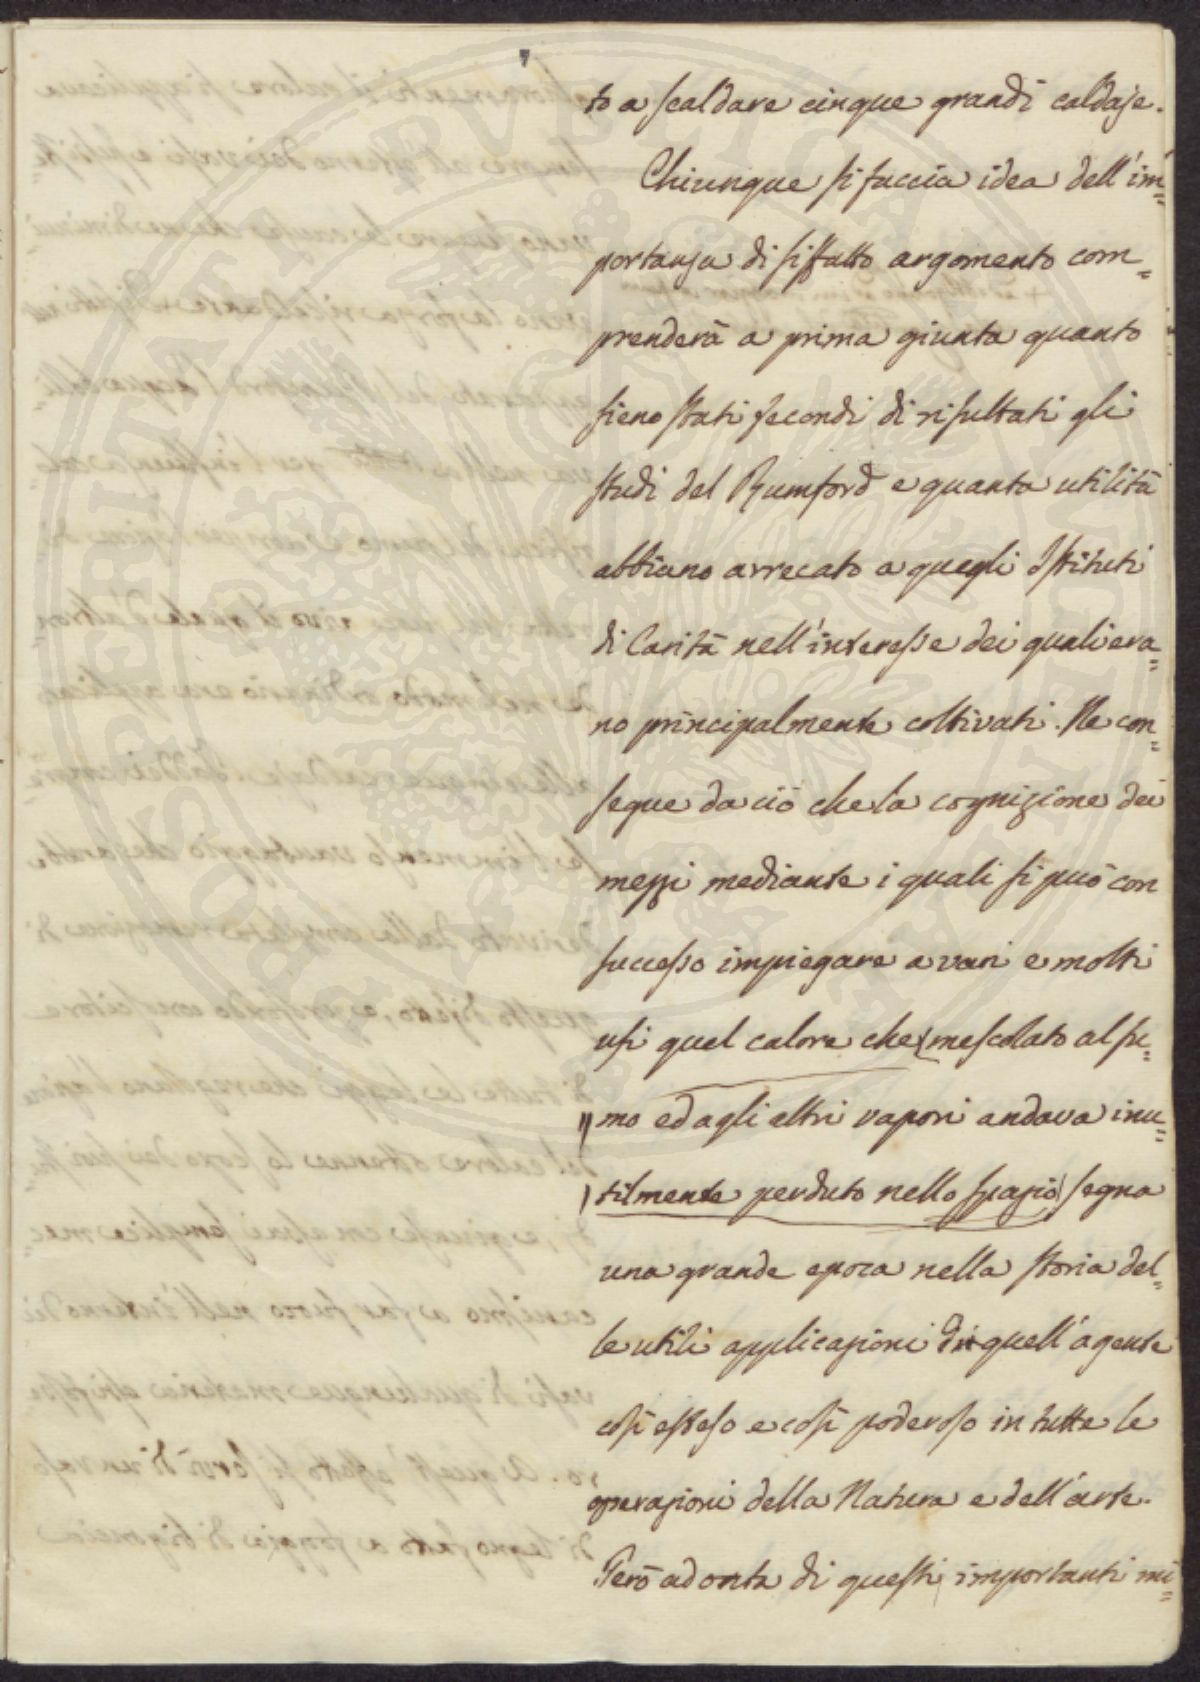 to a scaldare cinque grandi caldaje.
Chiunque si faccia idea dell'im=
portanza di siffatto argomento com=
prenderà a prima giunta quanto
sieno stati fecondi di risultati gli
studi del Rumford e quanta utilità
abbiano arrecato a quegli Istituti
di Carità nell'interesse dei quali era=
no principalmente coltivati. Ne con=
segue da ciò che la cognizione dei
mezzi mediante i quali si può con
successo impiegare a vari e molti
usi quel calore che (mescolato al fu=
mo ed agli altri vapori andava inu=
tilmente perduto nello spazio) segna
una grande epoca nella storia del=
le utili applicazioni di quell'agente
così esteso e così poderoso in tutte le
operazioni della Natura e dell'arte.
Però ad onta di questi importanti mi=